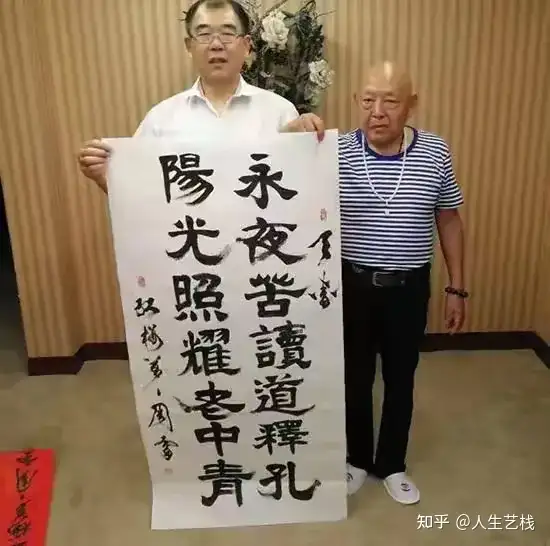 永夜苦讀道釋孔
陽光照耀老中青
知乎 @人生艺栈